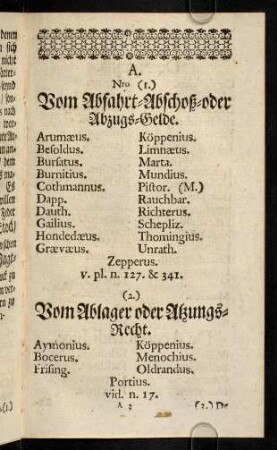 A.
Nro (1.)
Vom Abfahrt-Abschoß-oder
Abzugs-Gelde.
Arumæus. Köppenius.
Besoldus. Limnæus.
Bursatus. Marta.
Burnitius. Mundius.
Cothmannus. Pistor. (M.)
Dapp. Rauchbar.
Dauth. Richterus.
Gailius. Schepliz.
Hondedæus. Thomingius.
Grævæus. Unrath.
Zepperus.
v. pl. n. 127. & 341.
(2.)
Vom Ablager oder Atzungs-
Recht.
Aymonius. Köppenius.
Bocerus. Menochius.
Frising. Oldrandus.
Portius.
vid. n. 17.
A 3 (3.) De